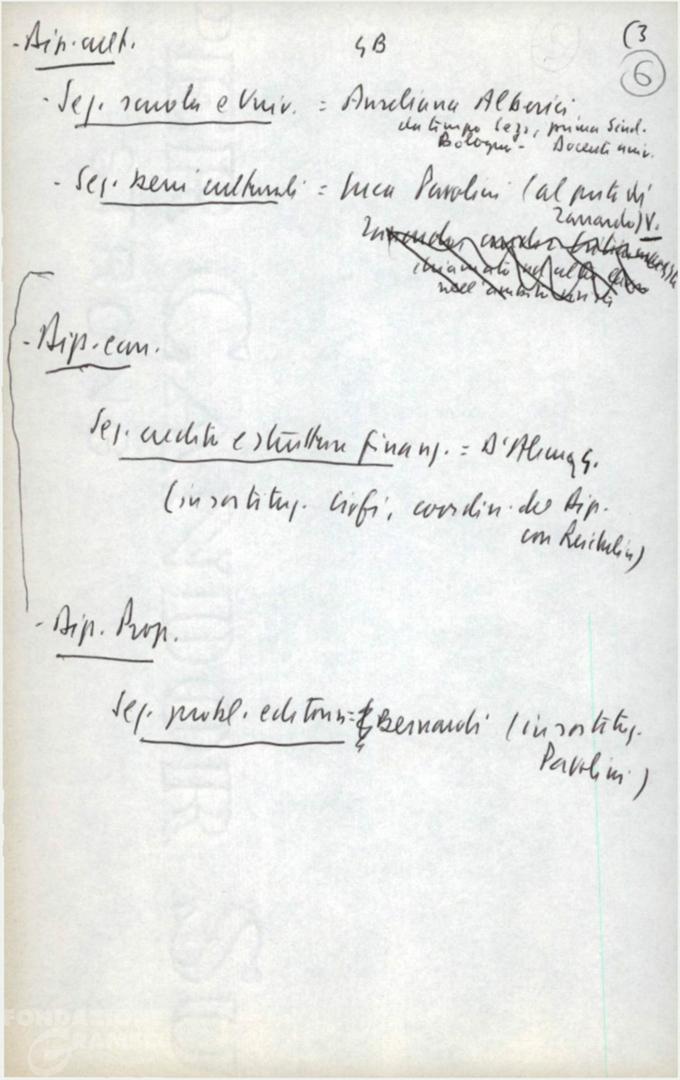 - Dip. cult.
4B
(3
6
- Sez. scuola e Univ. = Aureliana Alberici
da tempo Sez., prima Sind.
Bologna - Docenti univ.
- Sez. beni culturali = Luca Pavolini (al posto di
Zanardo) V.
chiamato
nell'ambito
- Dip. econ.
Sez. credito e strutture finanz. = D'Alema G.
(in sostituz. Ciofi, coordin. del Dip.
con Reichlin)
- Dip. Prop.
Sez. probl. editoria = Bernardi (in sostituz.
Pavolini)
FONDAZIONE
GRAMSCI